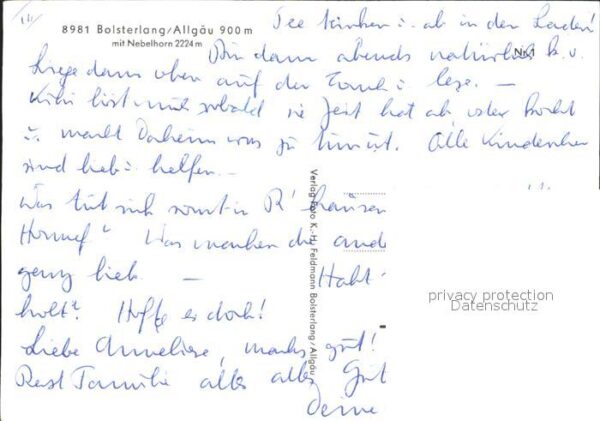 8981 Bolsterlang/Allgäu 900 m
mit Nebelhorn 2224 m
Nr. 1
Tee trinken u. ab in den Laden!
Bin dann abends natürlich k.o.
Liege dann oben auf der Couch u. lese. –
löst mich sobald sie Zeit hat ab, oder kocht
u. macht Daheim was zu tun ist. Alle Kinderchen
sind lieb u. helfen. –
Was tut sich sonst in R'hausen
Honnef" Was machen die
ganz lieb – Habt
holt? Hoffe es doch!
Liebe Anneliese, machs gut!
Rest Familie alles alles Gut
Deine
Verlag Foto K.-H. Feldmann Bolsterlang/Allgäu
privacy protection
Datenschutz